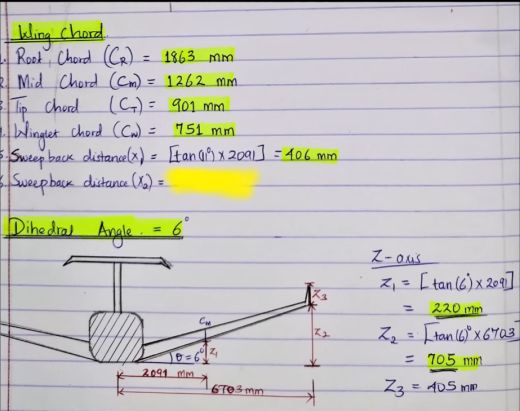 Wing Chord
1. Root Chord (CR) = 1863 mm
2 Mid Chord (Cm) = 1262 mm
3 Tip Chord (CT) = 901 mm
Winglet chord (CW) = 751 mm
5 Sweepback distance(x1) = [tan(11°) x 2091] = 406 mm
6. Sweepback distance (X2) =
Dihedral Angle. = 6°
Z-axis
Z1 = [tan(6°) x 2091]
= 220 mm
Z2 = [tan(6)° x 6703
= 705 mm
Z3 = 405 mm
Z3
CM
Z2
θ = 6°
Z1
2091 mm
6703 mm